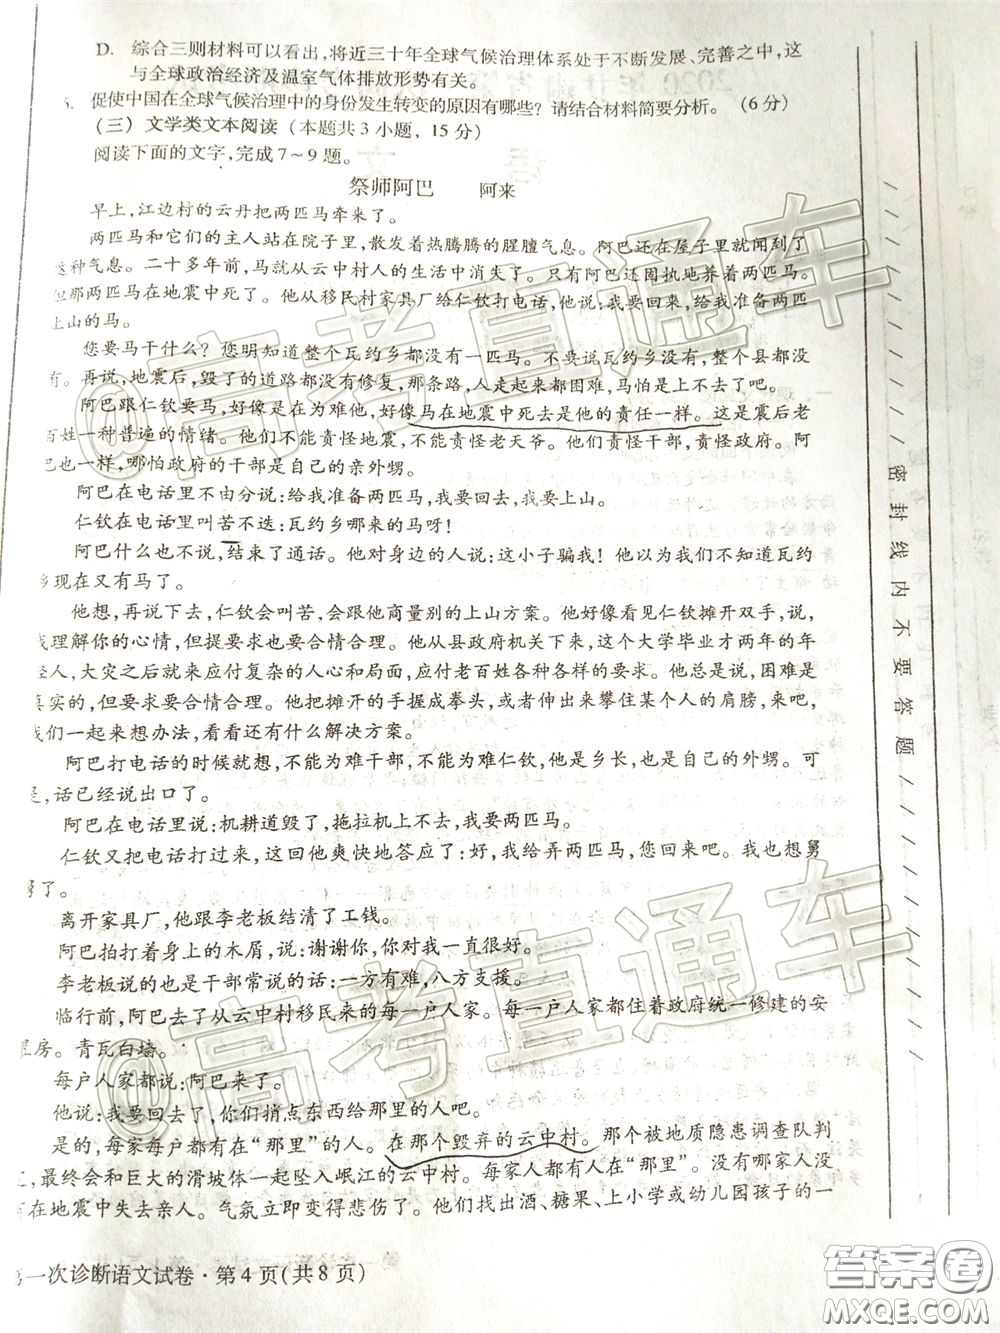 D. 综合三则材料可以看出,将近三十年全球气候治理体系处于不断发展、完善之中,这
与全球政治经济及温室气体排放形势有关。
促使中国在全球气候治理中的身份发生转变的原因有哪些?请结合材料简要分析。(6分)
(三)文学类文本阅读(本题共3小题,15分)
阅读下面的文字,完成7~9题。
祭师阿巴 阿来
早上,江边村的云丹把两匹马牵来了。
两匹马和它们的主人站在院子里,散发着热腾腾的腥膻气息。阿巴还在屋子里就闻到了
这种气息。二十多年前,马就从云中村人的生活中消失了。只有阿巴还固执地养着两匹马。
但那两匹马在地震中死了。他从移民村家具厂给仁钦打电话,他说:我要回来,给我准备两匹
上山的马。
您要马干什么?您明知道整个瓦约乡都没有一匹马。不要说瓦约乡没有马,整个县都没
有。再说,地震后,毁了的道路都没有修复,那条路,人走起来都困难,马怕是上不去了。
阿巴跟仁钦要马,好像是在为难他,好像马在地震中死去是他的责任一样。这是震后老
百姓一种普遍的情绪。他们不能责怪地震,不能责怪老天爷。他们责怪干部,责怪政府。阿
巴也一样,哪怕政府的干部是自己的亲外甥。
阿巴在电话里不由分说:给我准备两匹马,我要回去,我要上山。
仁钦在电话里叫苦不迭:瓦约乡哪来的马呀!
阿巴什么也不说,结束了通话。他对身边的人说:这小子骗我!他以为我们不知道瓦约
乡现在又有马了。
他想,再说下去,仁钦会叫苦,会跟他商量别的上山方案。他好像看见仁钦摊开双手,说,
我理解你的心情,但提要求也要合情合理。他从县政府机关下来,这个大学毕业才两年的年
轻人,大灾之后就来应付复杂的人心和局面,应付老百姓各种各样的要求。他总是说,困难是
真实的,但要求要合情合理。他把摊开的手握成拳头,或者伸出来攀住某个人的肩膀,来吧,
我们一起来想办法,看看还有什么解决方案。
阿巴打电话的时候就想,不能为难干部,不能为难仁钦,他是乡长,也是自己的外甥。可
是,话已经说出口了。
阿巴在电话里说:机耕道毁了,拖拉机上不去,我要两匹马。
仁钦又把电话打过来,这回他爽快地答应了:好,我给弄两匹马,您回来吧。我也想舅
舅了。
离开家具厂,他跟李老板结清了工钱。
阿巴拍打着身上的木屑,说:谢谢你,你对我一直很好。
李老板说的也是干部常说的话:一方有难,八方支援。
临行前,阿巴去了从云中村移民来的每一户人家。每一户人家都住着政府统一修建的安
居房。青瓦白墙。
每户人家都说:阿巴来了。
他说:我要回去了,你们捎点东西给那里的人吧。
是的,每家每户都有在“那里”的人。在那个毁弃的云中村。那个被地质隐患调查队判
定,最终会和巨大的滑坡体一起坠入岷江的云中村。每家人都有人在“那里”。没有哪家人没
有在地震中失去亲人。气氛立即变得悲伤了。他们找出酒、糖果、上小学或幼儿园孩子的一
第一次诊断语文试卷·第4页(共8页)
密封线内不要答题
@高考直通车
@高考直通车
答案圈
MXQE.COM